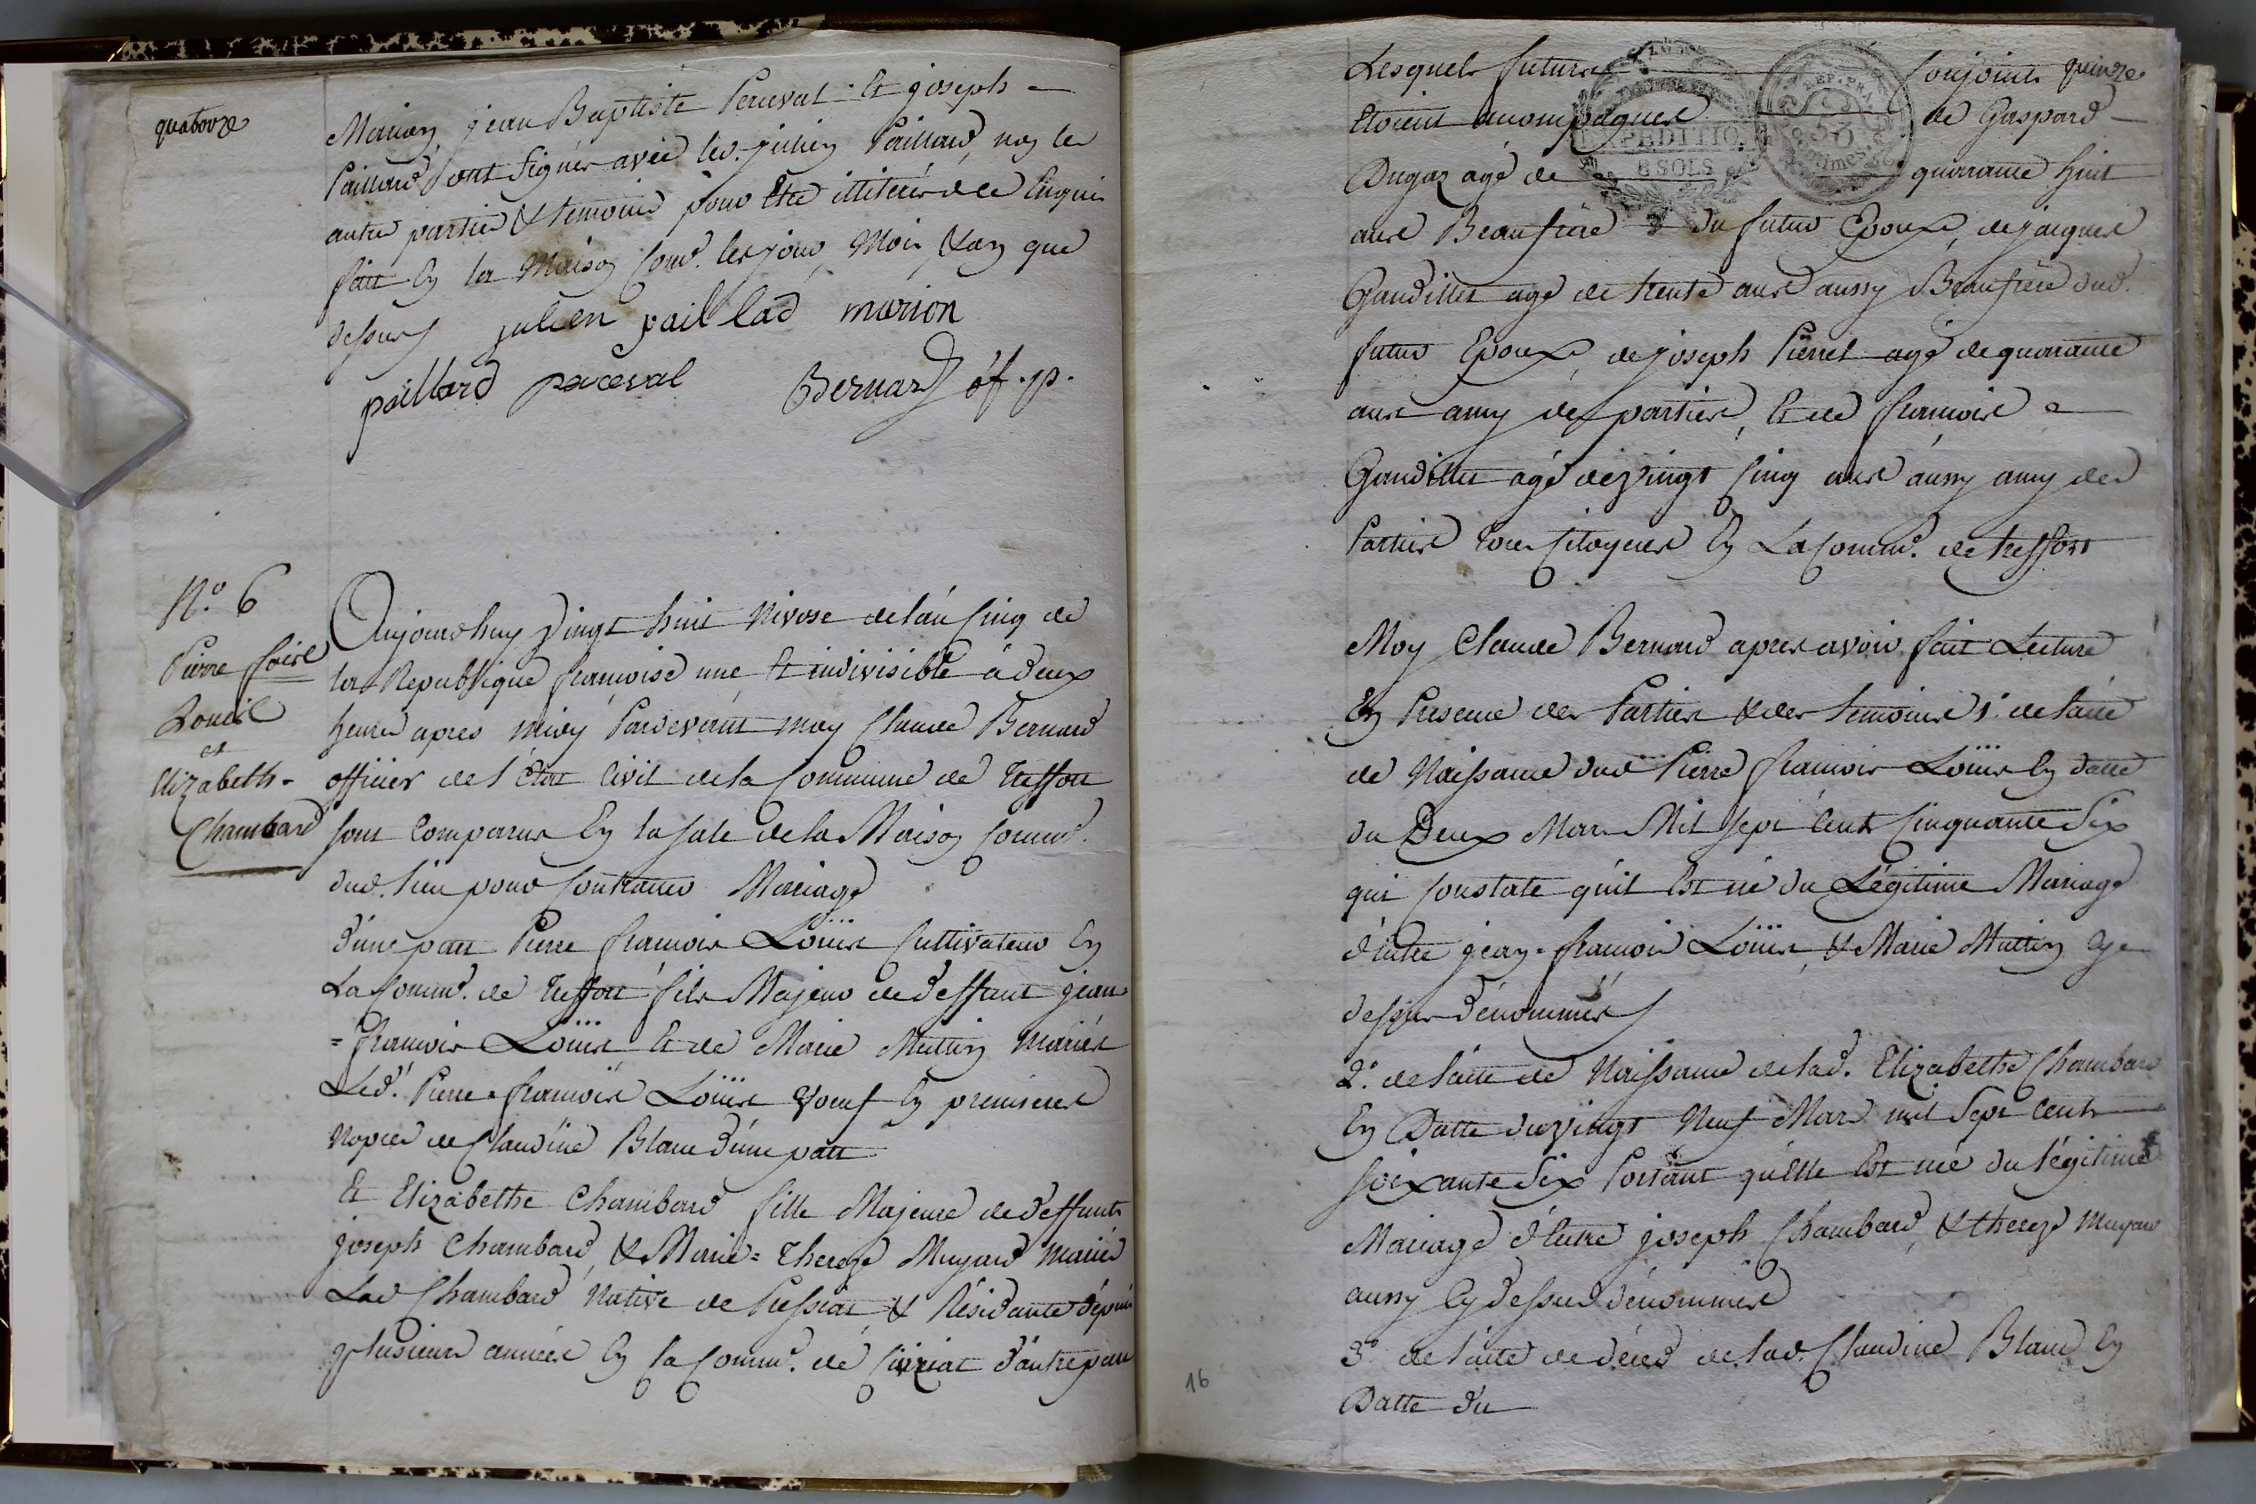 quatorze
Marion, jean Baptiste Perceval et joseph
Paillard sont signés avec led. julien Paillard, non les
autres parties & temoins pour etre illiterés de ce Enquis
fait En la Maison Comd. les jour, Mois, & an que
dessus
julien paillad marion
paillard perceval Bernard of. p.
N.o 6
Pierre fcoise
Louis
et
Elizabeth
Chambard
Aujourdhuy Vingt huit Nivose de l'an Cinq de
la Republique francoise une et indivisible à deux
heures apres midy Pardevant moy Claude Bernard
officier de l'état Civil de la Commune de treffort
sont Comparus En la sale de la Maison Commd.
dud. lieu pour Contracter Mariage
d'une part Pierre francois Loüis Cultivateur En
La Commd. de treffort fils Majeur de deffunt jean
=francois Loüis et de Marie Muttin Mariés
Led. Pierre francois Loüis Voeuf En premieres
Nopces de Claudine Blanc d'une part
Et Elizabethe Chambard fille Majeure de deffunts
joseph Chambard, & Marie=Thereze Muyard Mariés
Lad Chambard Native de Pressiat & Résidante depuis
plusieurs années En la Commd. de Cuiziat d'autre part
Lesquels futurs Conjoints quinze
Etoient accompagnés de Gaspard
Dugaz agé de quarante huit
ans Beaufrere du futur Epoux, de jacques
Gaudillet agé de trente ans aussy Beaufrere dud.
futur Epoux, de joseph Pierret agé de quarante
ans amy des parties, et de francois
Gaudillet agé de vingt Cinq ans aussy amy des
Parties tous Citoyens En La Commd. de treffort
EXPEDITIO
8 SOLS
REP. FRA.
Moy Claude Bernard apres avoir fait Lecture
En Presence des Parties & des temoins 1.o de l'acte
de Naissance dud Pierre francois Loüis En datte
du Deux Mars Mil sept Cent Cinquante Six
qui Constate quil Est né du Légitime Mariage
d'Entre jean=francois Loüis, & Marie Muttin Cy
dessus dénommés
2.o de l'acte de Naissance de lad. Elizabethe Chambard
En Datte du vingt Neuf Mars mil Sept Cent
soixante Six Portant qu'Elle Est née du légitime
Mariage d'Entre joseph Chambard, & thereze Muyard
aussy Cy dessus dénommés
3.o de l'acte de déces de lad. Claudine Blanc En
Datte du
16